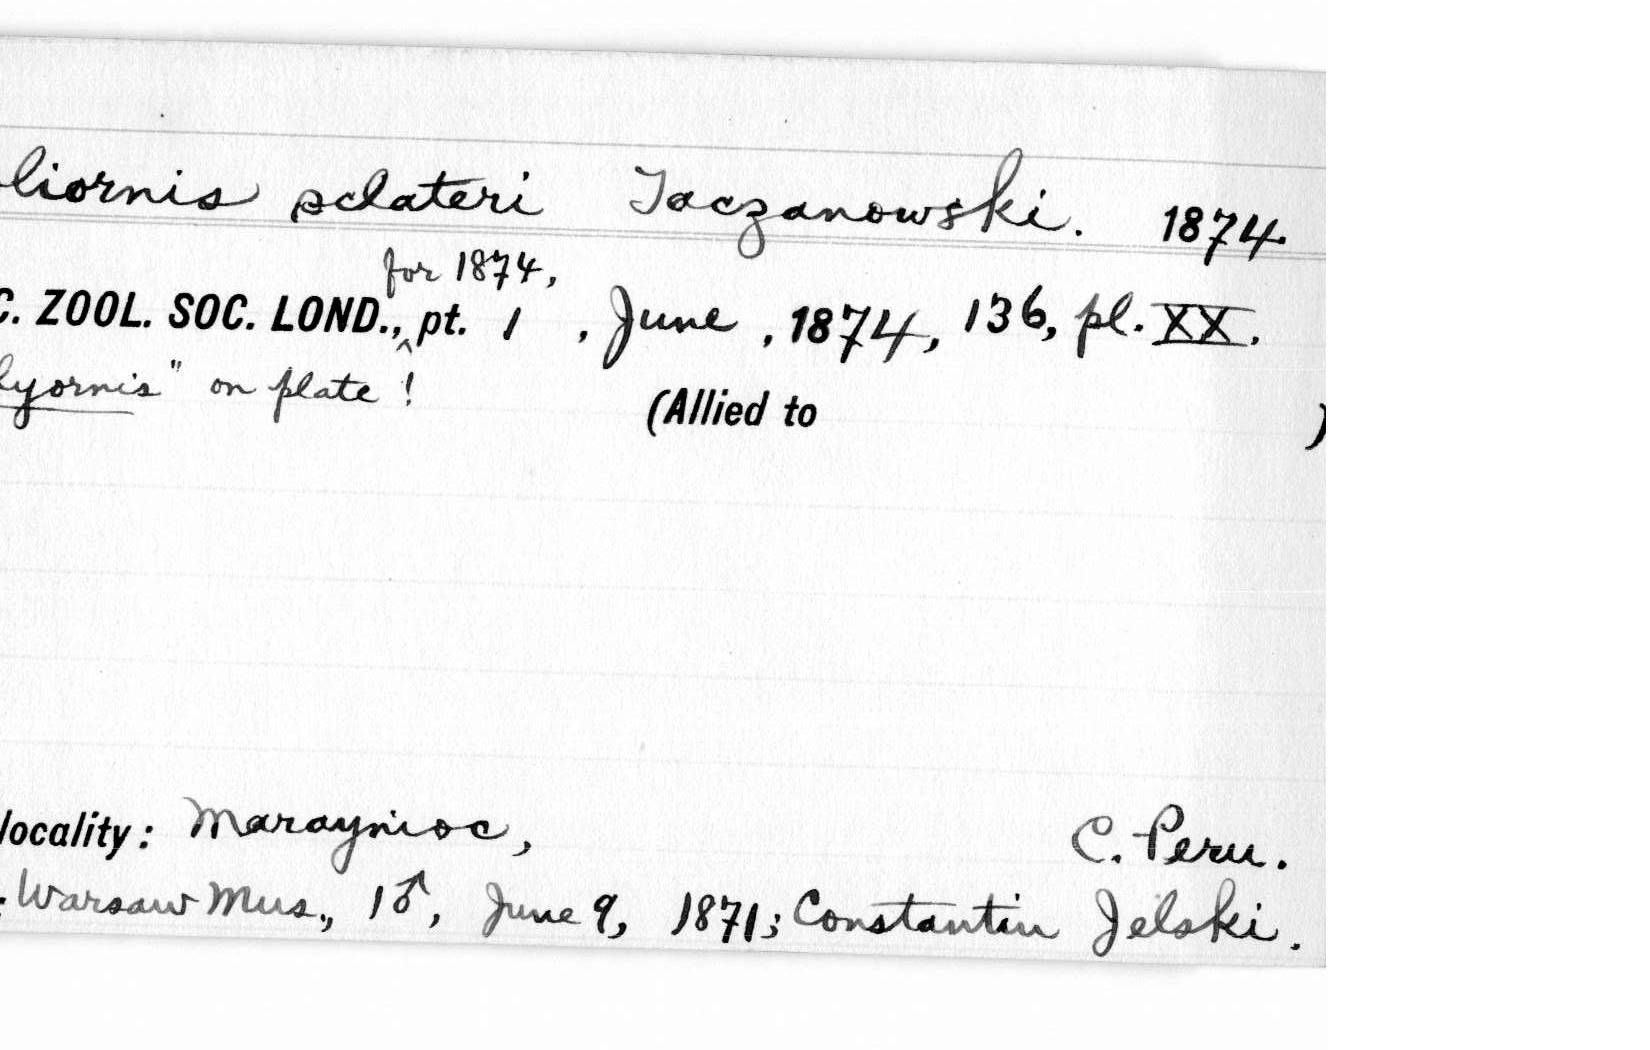 liornis sclateri Taczanowski. 1874.
for 1874,
C. ZOOL. SOC. LOND., ^ pt. 1 , June , 1874, 136, pl. XX.
lyornis" on plate !
(Allied to )
locality: Maraynioc, C. Peru.
: Warsaw Mus., 1♂, June 9, 1871; Constantin Jelski.